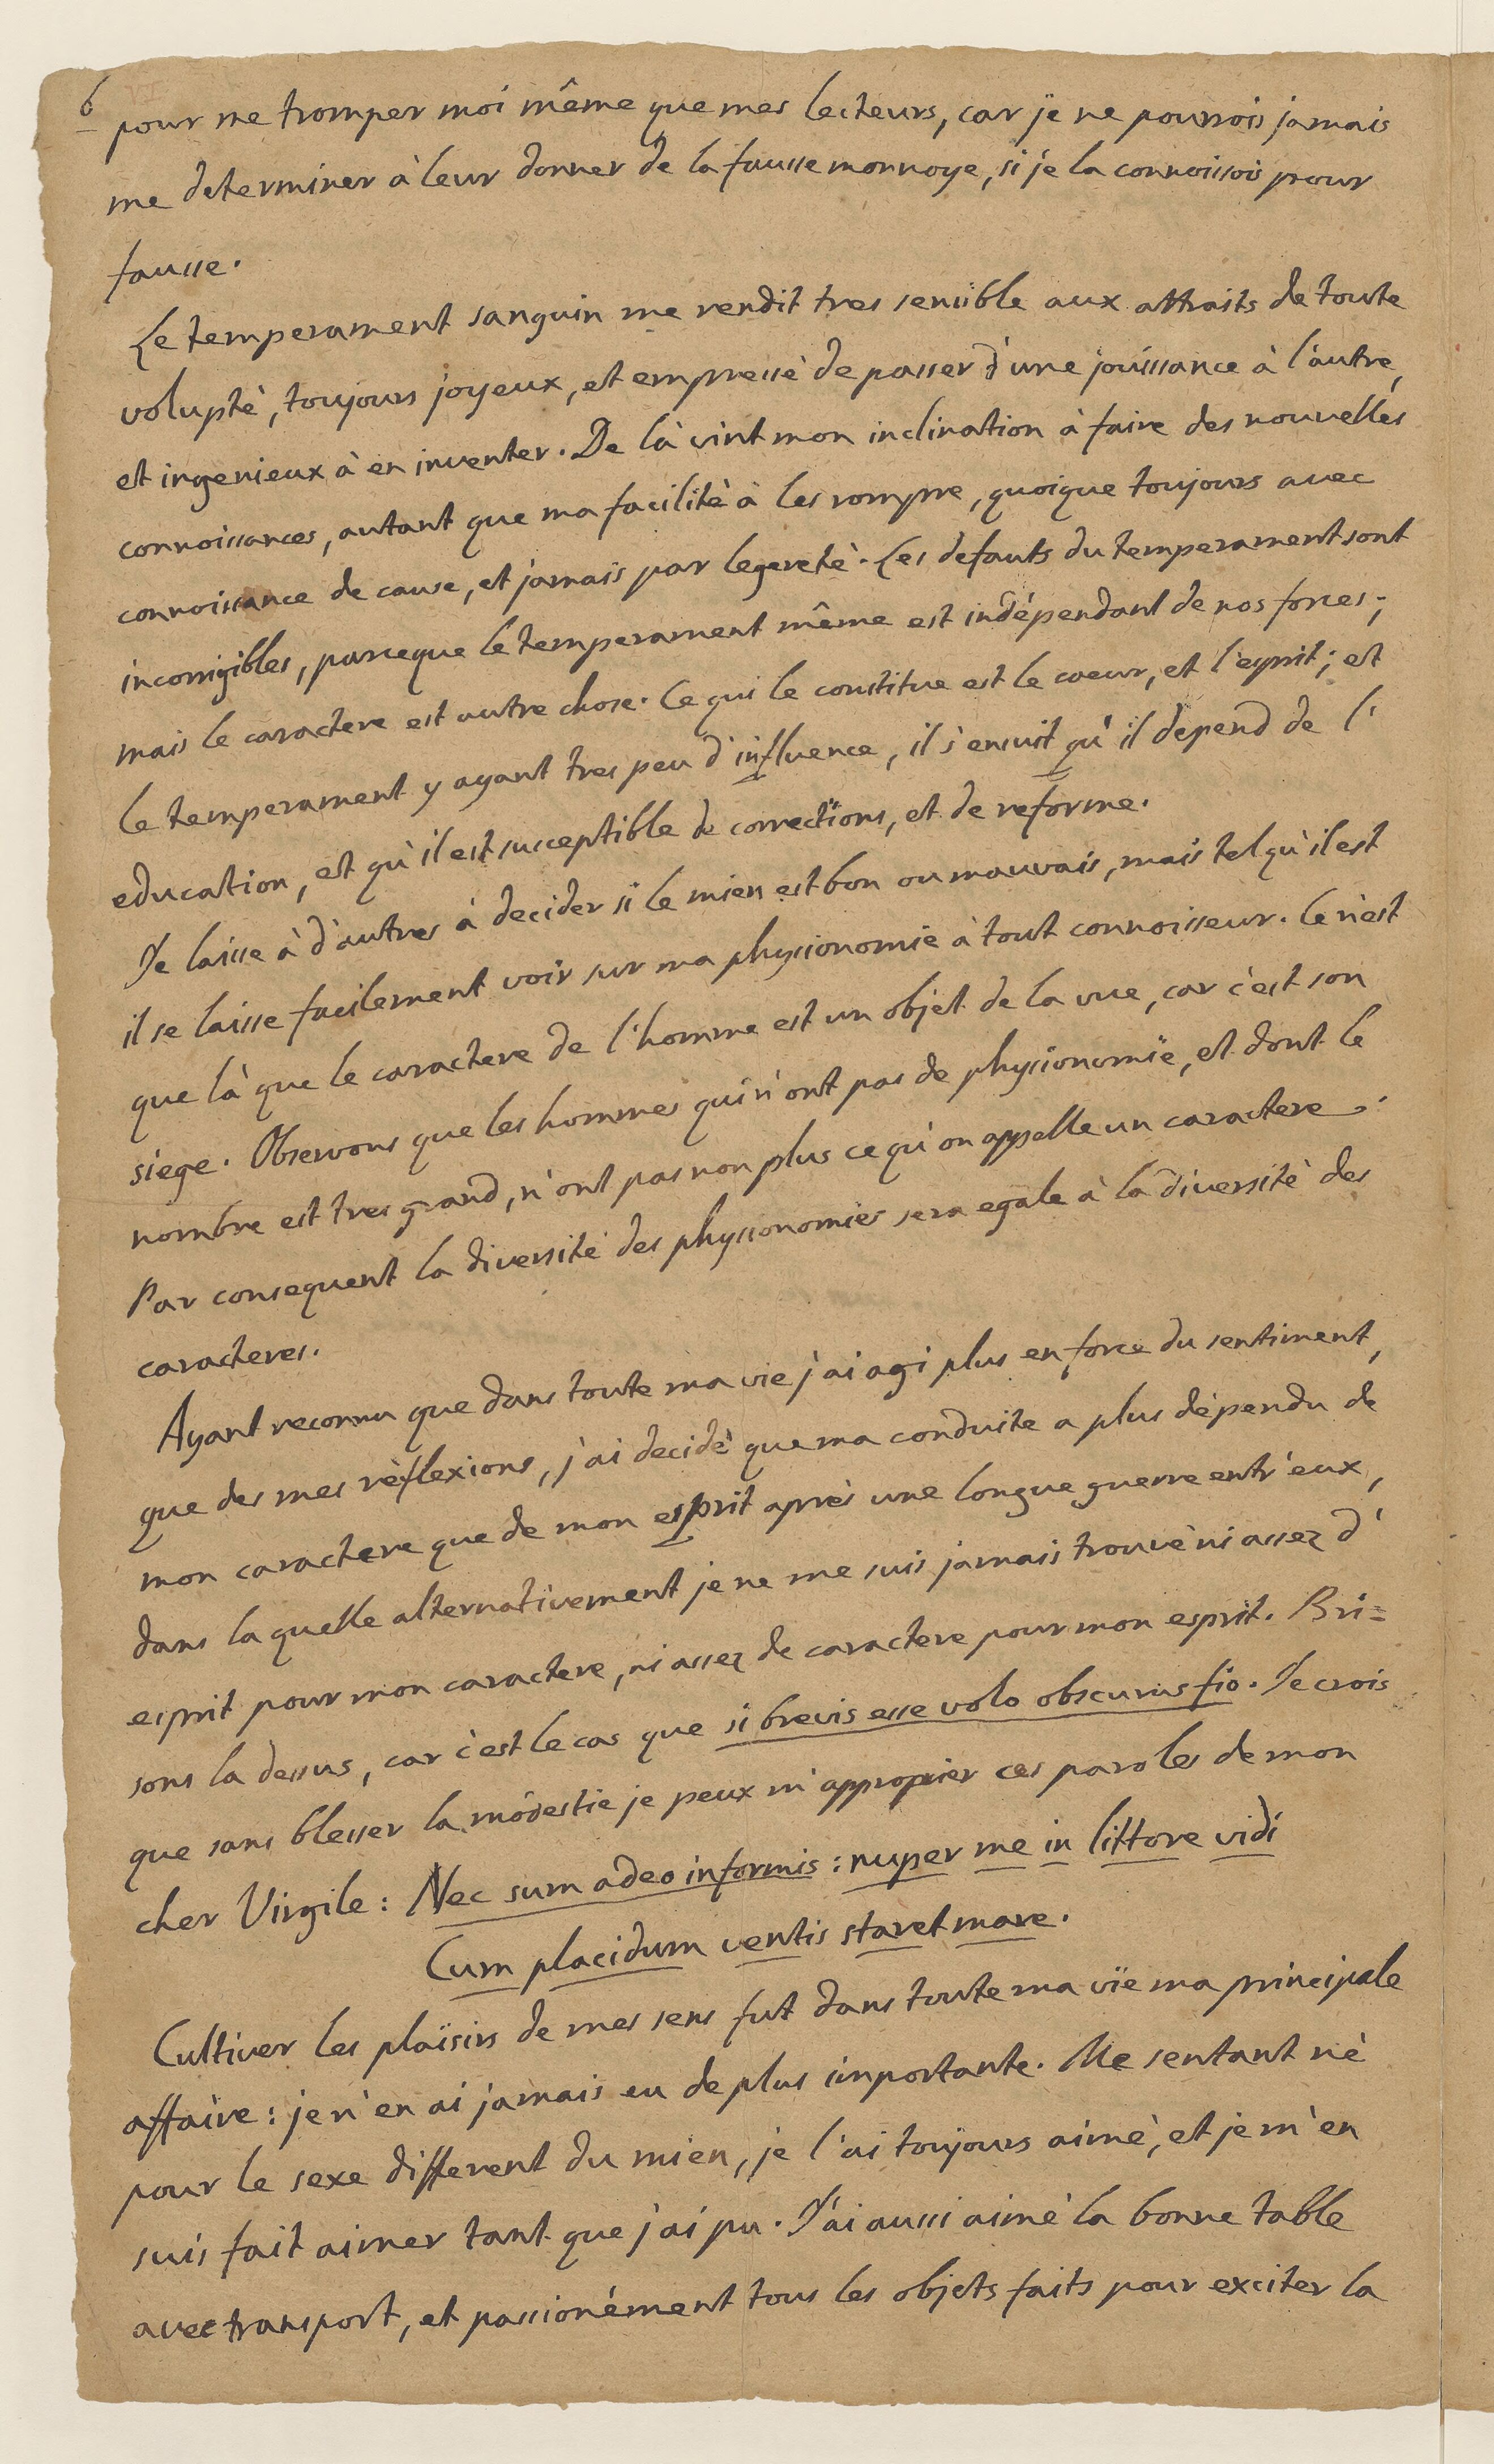 6
pour me tromper moi même que mes lecteurs, car je ne pourrois jamais
me determiner à leur donner de la fausse monnoye, si je la connoissois pour
fausse.
Le temperament sanguin me rendit tres sensible aux attraits de toute
voluptè, toujours joyeux, et empressè de passer d'une jouissance à l'autre,
et ingenieux à en inventer. De là vint mon inclination à faire des nouvelles
connoissances, autant que ma facilitè à les rompre, quoique toujours avec
connoissance de cause, et jamais par legeretè. Les defauts du temperament sont
incorrigibles, parceque le temperament même est indépendant de nos forces;
mais le caractere est autre chose. Ce qui le constitue est le coeur, et l'esprit; et
le temperament y ayant tres peu d'influence, il s'ensuit qu'il depend de l'
education, et qu'il est susceptible de corrections, et de reforme.
Je laisse à d'autres à decider si le mien est bon ou mauvais, mais tel qu'il est
il se laisse facilement voir sur ma physionomie à tout connoisseur. Ce n'est
que là que le caractere de l'homme est un objet de la vue, car c'est son
siege. Observons que les hommes qui n'ont pas de physionomie, et dont le
nombre est tres grand, n'ont pas non plus ce qu'on appelle un caractere.
Par consequent la diversité des physionomies sera egale à la diversitè des
caracteres.
Ayant reconnu que dans toute ma vie j'ai agi plus en force du sentiment,
que des mes rèflexions, j'ai decidè que ma conduite a plus dépendu de
mon caractere que de mon esprit après une longue guerre entr'eux,
dans la quelle alternativement je ne me suis jamais trouvè ni assez d'
esprit pour mon caractere, ni assez de caractere pour mon esprit. Bri=
sons la dessus, car c'est le cas que si brevis esse volo obscurus fio. Je crois
que sans blesser la modestie je peux m'approprier ces paroles de mon
cher Virgile: Nec sum adeo informis: nuper me in littore vidi
Cum placidum ventis staret mare.
Cultiver les plaisirs de mes sens fut dans toute ma vie ma principale
affaire: je n'en ai jamais eu de plus importante. Me sentant nè
pour le sexe different du mien, je l'ai toujours aimè, et je m'en
suis fait aimer tant que j'ai pu. J'ai aussi aimè la bonne table
avec transport, et passionément tous les objets faits pour exciter la